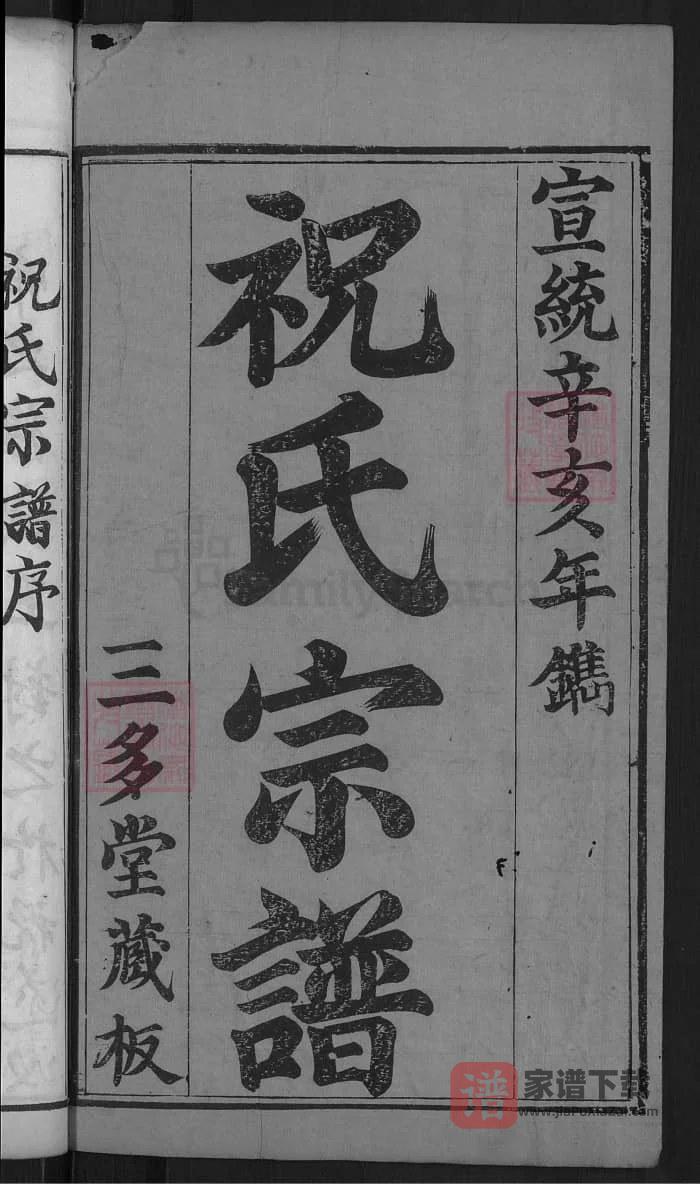 宣統辛亥年鐫
祝氏宗譜
三多堂藏板
祝氏宗譜序
譜
家谱下载
www.jiapuxiazai.com